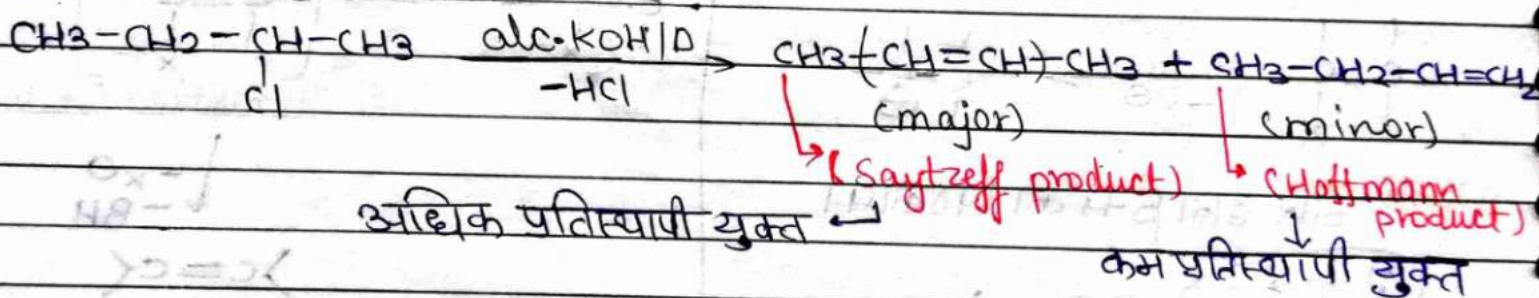 CH3-CH2-CH-CH3 alc.KOH/D CH3-(CH=CH)-CH3 + CH3-CH2-CH=CH2
Cl -HCl (major) (minor)
(Saytzeff product) (Hoffmann product)
अधिक प्रतिस्थापी युक्त
कम प्रतिस्थापी युक्त